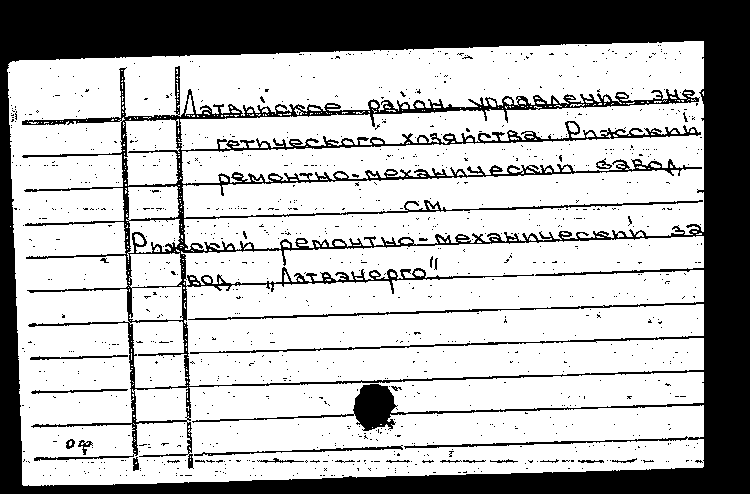 Латвийское район. управление энер
гетического хозяйства. Рижский
ремонтно-механический завод,
см.
Рижский ремонтно-механический за
вод „Латвэнерго"
оф